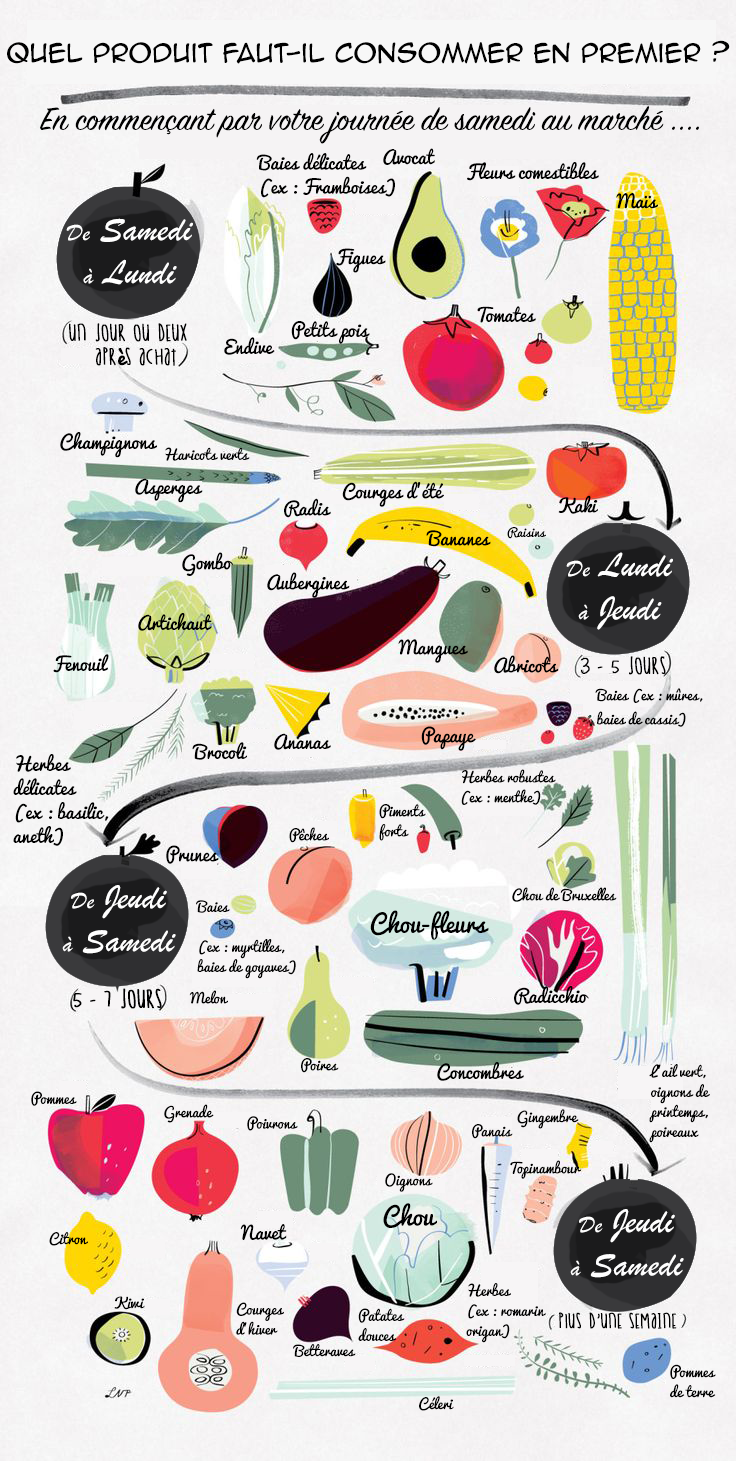 QUEL PRODUIT FAUT-IL CONSOMMER EN PREMIER ?
En commençant par votre journée de samedi au marché ....
De Samedi
à Lundi
(UN JOUR OU DEUX
APRès ACHAT)
Baies délicates
(ex : Framboises)
Avocat
Fleurs comestibles
Maïs
Figues
Tomates
Petits pois
Endive
Champignons
Haricots verts
Asperges
Courges d'été
Kaki
Radis
Bananes
Raisins
Gombo
Aubergines
De Lundi
à Jeudi
(3 - 5 JOURS)
Artichaut
Mangues
Abricots
Fenouil
Baies (ex : mûres,
baies de cassis)
Brocoli
Ananas
Papaye
Herbes
délicates
(ex : basilic,
aneth)
Herbes robustes
(ex : menthe)
Piments
forts
Prunes
Pêches
De Jeudi
à Samedi
(5 - 7 JOURS)
Baies
(ex : myrtilles,
baies de goyaves)
Chou-fleurs
Chou de Bruxelles
Radicchio
Melon
Poires
Concombres
L'ail vert,
oignons de
printemps,
poireaux
Pommes
Grenade
Poivrons
Oignons
Panais
Gingembre
Topinambour
De Jeudi
à Samedi
(PLUS D'UNE SEMAINE)
Citron
Navet
Chou
Kiwi
Courges
d'hiver
Betteraves
Patates
douces
Herbes
(ex : romarin
origan)
Céleri
Pommes
de terre
LNP